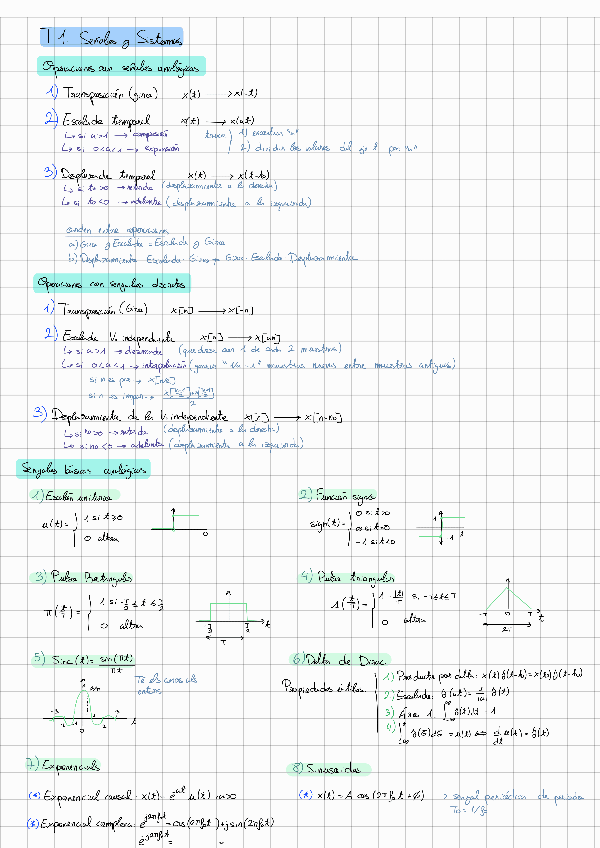 T1 Señales y Sistemas
Operaciones con señales analógicas
1) Transposición (girar) x(t) → x(-t)
2) Escalado temporal x(t) → x(at)
↳ si a>1 → compresión
↳ si 0<a<1 → expansión
truco 1) escribir "a"
2) dividir los valores del eje t por "a"
3) Desplazado temporal x(t) → x(t-to)
↳ si to>0 → retarda (desplazamiento a la derecha)
↳ si to<0 → adelanta (desplazamiento a la izquierda)
orden entre operaciones
a) Girar y Escalado = Escalado y Girar
b) Desplazamiento Escalado Girar ≠ Girar Escalado Desplazamiento
Operaciones con senyales discretas
1) Transposición (Girar) x[n] → x[-n]
2) Escalado V. independiente x[n] → x[an]
↳ si a>1 → diezmado (quedarse con 1 de cada 2 muestras)
↳ si 0<a<1 → interpolación ( muestras nuevas entre muestras antiguas)
si n es par → x[n/2]
si n es impar →
3) Desplazamiento de la V. independiente x[n] → x[n-no]
↳ si no>0 → retarda (desplazamiento a la derecha)
↳ si no<0 → adelanta (desplazamiento a la izquierda)
Senyales básicas analógicas
1) Escalón unitario
u(t)= 1 si t≥0
0 altrm
0
2) Función signo
sign(t)= 0 si t>0
0 si t=0
-1 si t<0
1
1
3) Pulso Rectangular
π(t/T)= 1 si -T/2 ≤ t ≤ T/2
0 altrm
t
T
4) Pulso triangular
1 - |t|/T si -T≤t≤T
0 altrm
-T 0 T t
5) Sinc(t) = sin(πt)/πt
0 t
6) Delta de Dirac
Propiedades útiles:
1) Producto por delta: x(t) δ(t-to) = x(to) δ(t-to)
2) Escalado: δ(at) = 1/|a| δ(t)
3) Área 1: ∫ δ(t)dt = 1
4) = u(t) ⇔ d/dt u(t) = δ(t)
7) Exponencials
(*) Exponencial causal: x(t) = e^-at u(t) a>0
(*) Exponencial compleja: e^j2πfot = cos(2πfot) + j sin(2πfot)
8) Sinusoides
(*) x(t) = A cos(2πfot + φ)
> senyal periódica de periodo
To = 1/fo